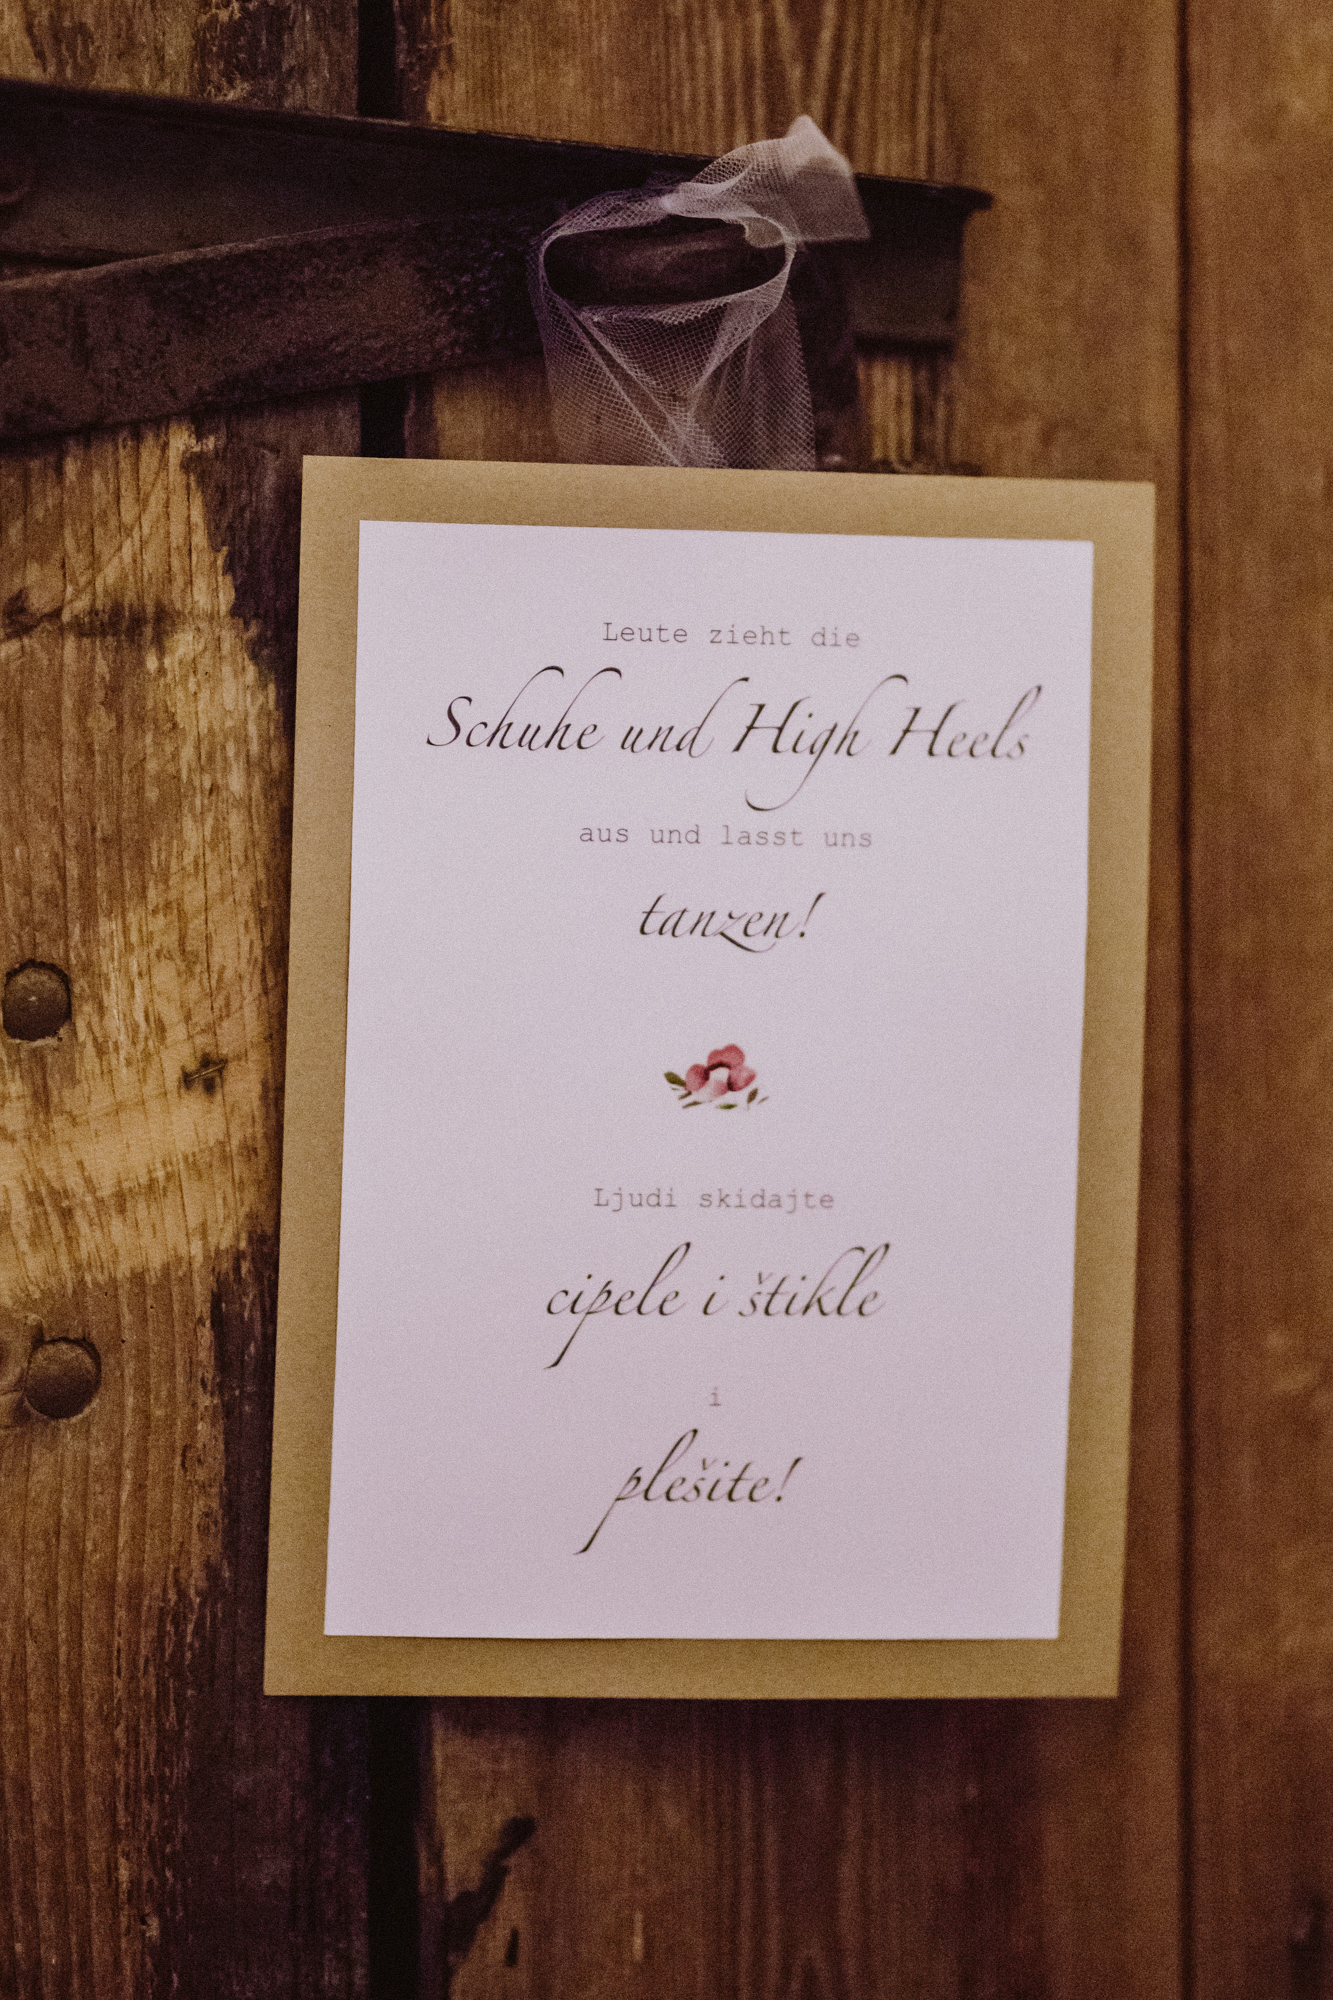 Leute zieht die
Schuhe und High Heels
aus und lasst uns
tanzen!
Ljudi skidajte
cipele i štikle
i
plešite!